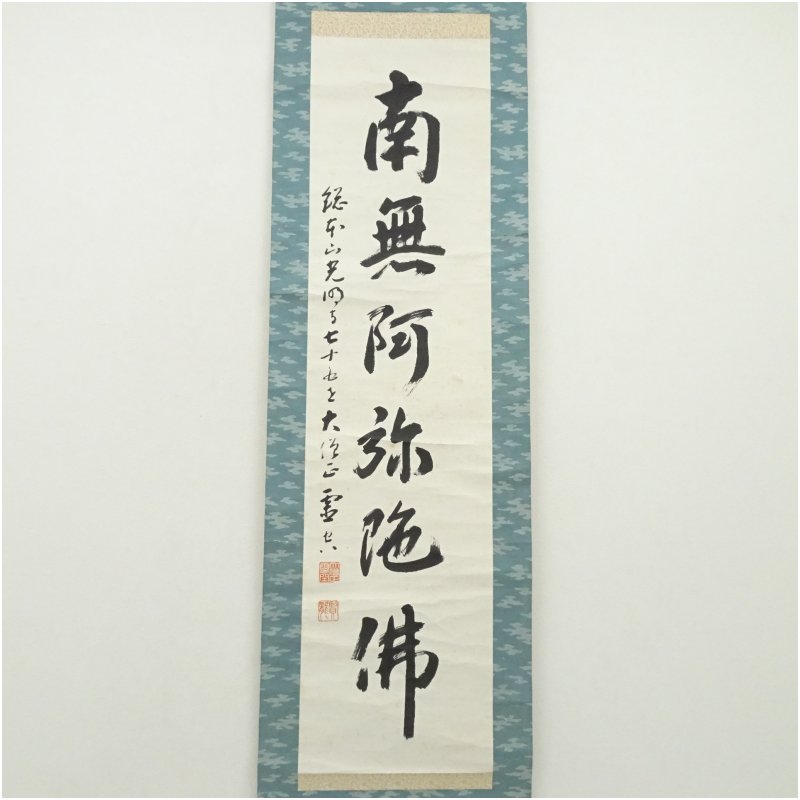 南無阿弥陀佛
総本山光明寺七十五世大僧正霊空